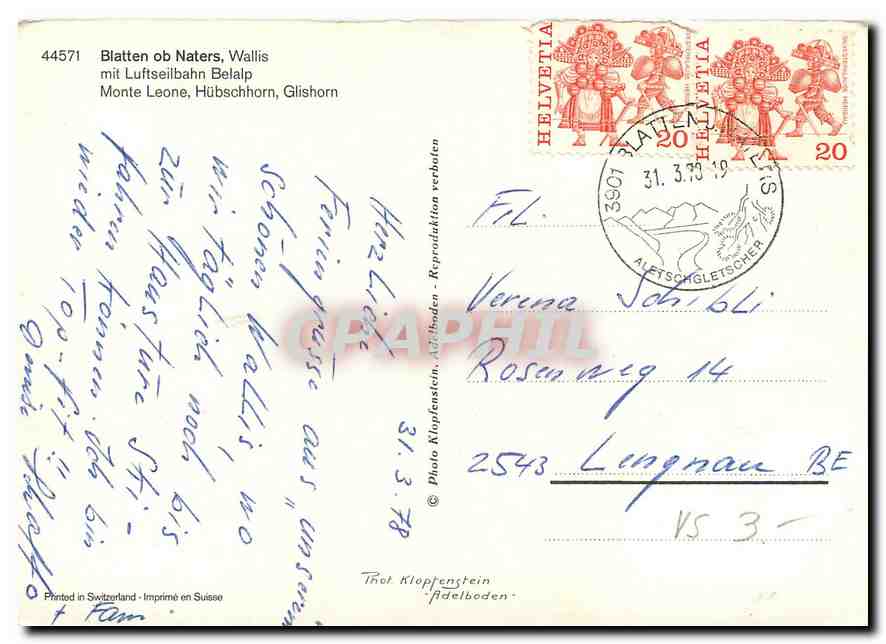 44571 Blatten ob Naters, Wallis
mit Luftseilbahn Belalp
Monte Leone, Hübschhorn, Glishorn
31.3.78
Herzliche
Feriengrüsse aus "unserem"
schönen Wallis, wo
wir täglich noch bis
zur Haustüre Ski-
fahren können. Ich bin
wieder "top-fit"!
+ Fam.
Printed in Switzerland - Imprimé en Suisse
© Photo Klopfenstein, Adelboden - Reproduktion verboten
Phot. Klopfenstein
-Adelboden-
HELVETIA
20
HELVETIA
SILVESTERKLÄUSE HERISAU
20
3901 BLATTEN B. NATERS
31. 3.78-19
ALETSCHGLETSCHER
Frl.
Verena Schibli
Rosenweg 14
2543 Lengnau BE
VS 3.-
CPAPHIL